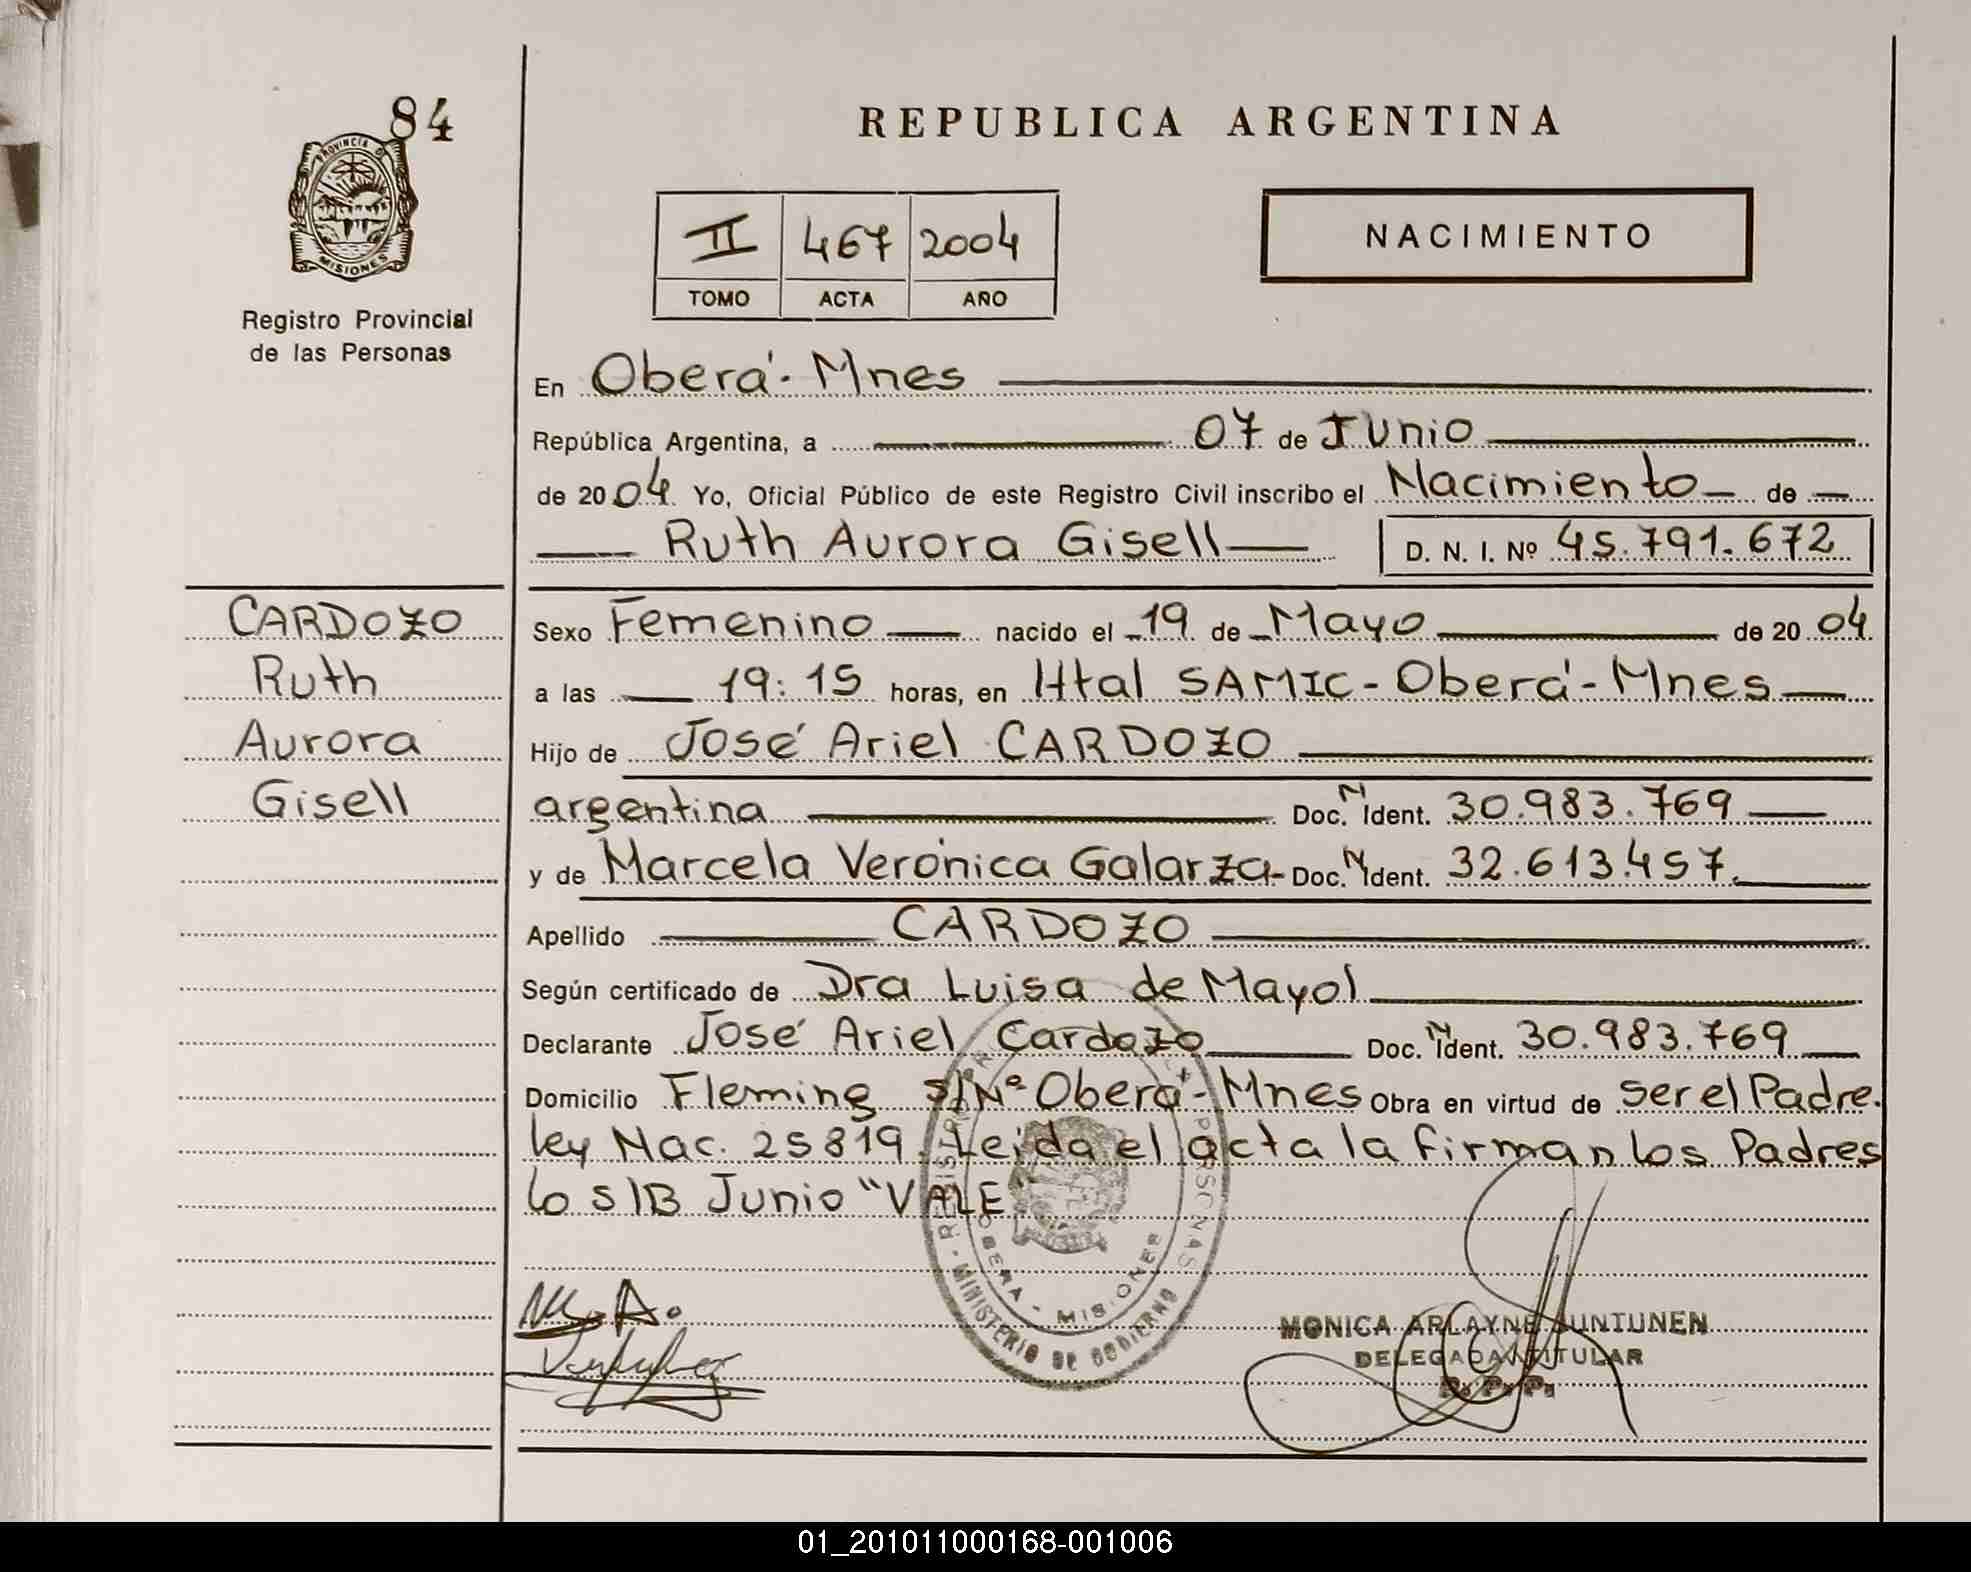 84
PROVINCIA DE
MISIONES
Registro Provincial
de las Personas
REPUBLICA ARGENTINA
II 467 2004
TOMO ACTA AÑO
NACIMIENTO
En Oberá - Mnes
República Argentina, a 07 de Junio
de 2004 Yo, Oficial Público de este Registro Civil inscribo el Nacimiento de
Ruth Aurora Gisell D. N. I. Nº 45.791.672
CARDOZO
Ruth
Aurora
Gisell
Sexo Femenino nacido el 19 de Mayo de 2004
a las 19:15 horas, en Httal SAMIC - Oberá - Mnes
Hijo de José Ariel CARDOZO
argentina Doc. N Ident. 30.983.769
y de Marcela Verónica Galarza - Doc. N Ident. 32.613.457.
Apellido CARDOZO
Según certificado de Dra Luisa de Mayol
Declarante José Ariel Cardozo Doc. N Ident. 30.983.769
Domicilio Fleming S/Nº Oberá - Mnes Obra en virtud de ser el Padre.
ley Nac. 25819. Leida el acta la firman los Padres
lo S/B Junio "VALE"
OBERA - MISIONES
MINISTERIO DE GOBIERNO
MONICA ARLAYNE SUNTUNEN
DELEGADA TITULAR
R. P. P.
01_201011000168-001006